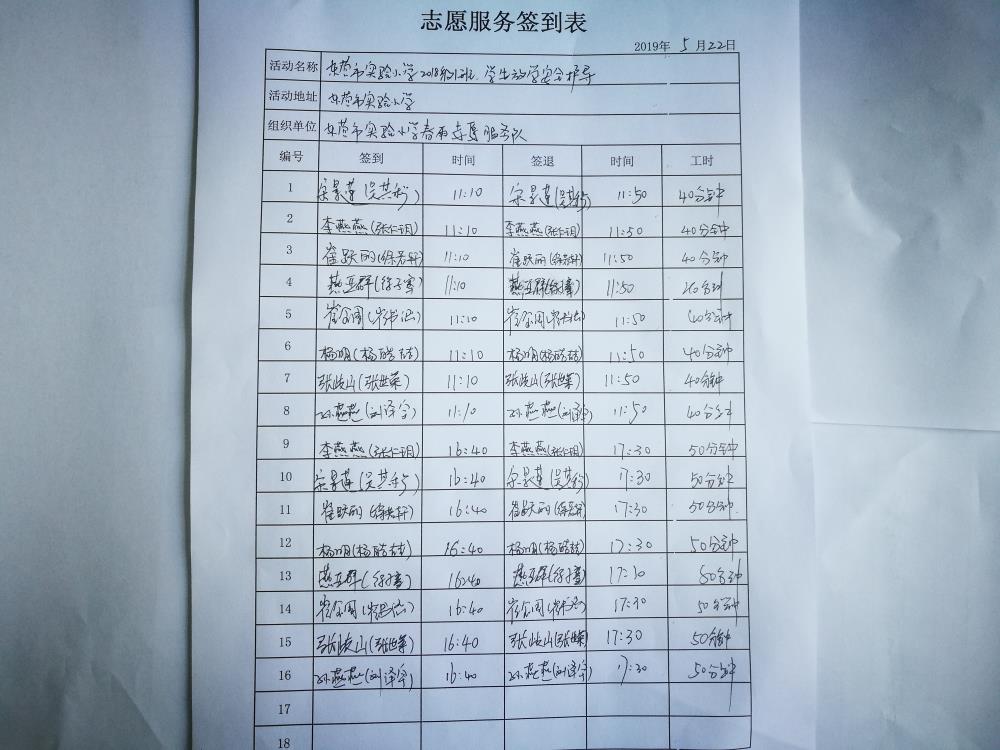 志愿服务签到表
2019年 5 月 22日
活动名称 东营市实验小学2018级12班 学生放学安全护导
活动地址 东营市实验小学
组织单位 东营市实验小学春雨志愿服务队
编号 签到 时间 签退 时间 工时
1 宋景莲(吴其 11:10 宋景莲(吴其 11:50 40分钟
2 李燕燕(张仁玥) 11:10 李燕燕(张仁玥) 11:50 40分钟
3 崔跃丽(徐若轩) 11:10 崔跃丽(徐若轩 11:50 40分钟
4 燕亚群(徐子骞) 11:10 燕亚群(徐子骞) 11:50 40分钟
5 11:10 11:50 40分钟
6 杨明(杨皓喆) 11:10 杨明(杨皓喆) 11:50 40分钟
7 张岐山(张世荣) 11:10 张岐山(张世荣) 11:50 40分钟
8 孙燕燕(刘泽宇) 11:10 孙燕燕(刘泽宇) 11:50 40分钟
9 李燕燕(张仁玥) 16:40 李燕燕(张仁玥) 17:30 50分钟
10 宋景莲(吴其 16:40 宋景莲(吴其 17:30 50分钟
11 崔跃丽(徐若轩) 16:40 崔跃丽(徐若轩 17:30 50分钟
12 杨明(杨皓喆) 16:40 杨明(杨皓喆) 17:30 50分钟
13 燕亚群(徐子骞) 16:40 燕亚群(徐子骞) 17:30 50分钟
14 16:40 17:30 50分钟
15 张岐山(张世荣) 16:40 张岐山(张世荣) 17:30 50分钟
16 孙燕燕(刘泽宇) 16:40 孙燕燕(刘泽宇) 17:30 50分钟
17
18